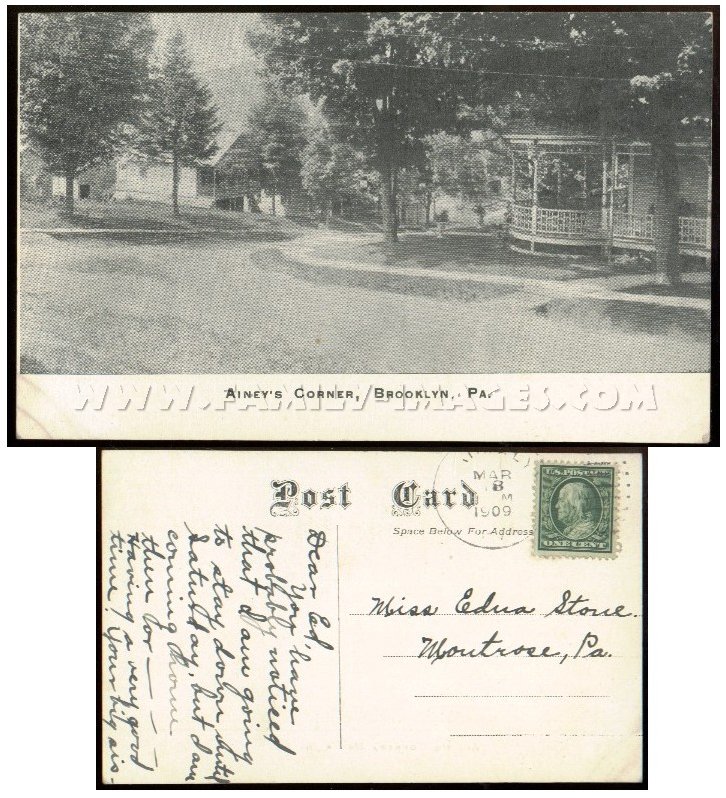 AINEY'S CORNER, BROOKLYN, PA.
WWW.FAMILY-IMAGES.COM
Post Card
Space Below For Address
MAR
8
M
1909
U.S. POSTAGE
ONE CENT
Miss Edna Stone.
Montrose, Pa.
Dear Ed,
You have
probably noticed
that I am going
to stay down until
Saturday, but I am
coming home
then for — — — —
Having a very good
time. Your big sis-